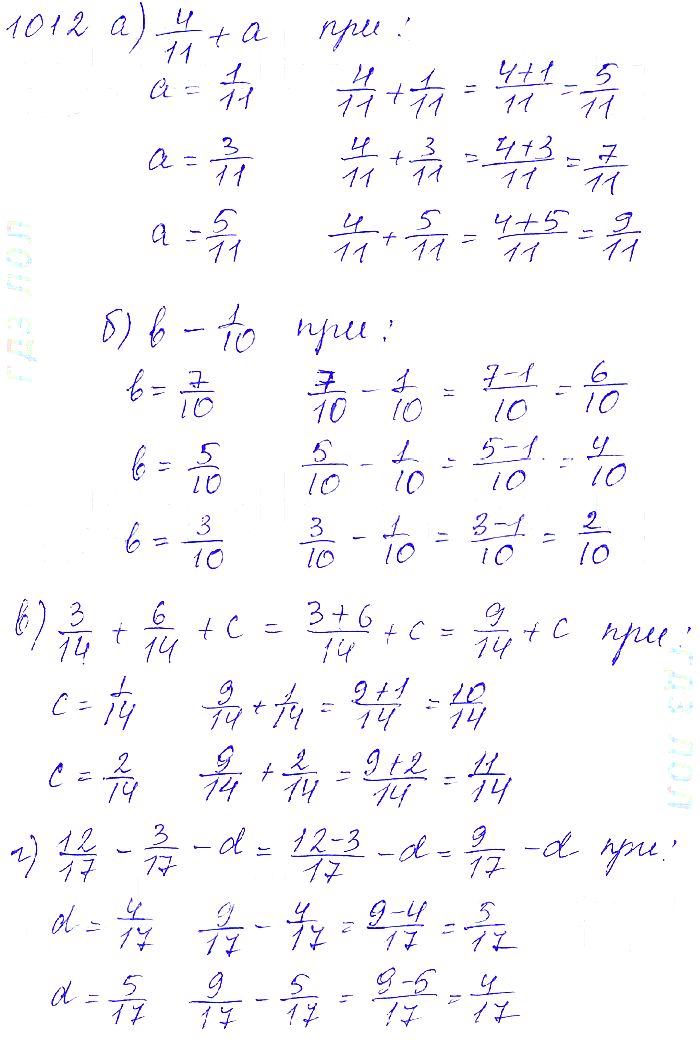 1012 а) 4/11 + a при:
a = 1/11 4/11 + 1/11 = 4+1/11 = 5/11
a = 3/11 4/11 + 3/11 = 4+3/11 = 7/11
a = 5/11 4/11 + 5/11 = 4+5/11 = 9/11
б) в - 1/10 при:
в = 7/10 7/10 - 1/10 = 7-1/10 = 6/10
в = 5/10 5/10 - 1/10 = 5-1/10 = 4/10
в = 3/10 3/10 - 1/10 = 3-1/10 = 2/10
в) 3/14 + 6/14 + c = 3+6/14 + c = 9/14 + c при:
c = 1/14 9/14 + 1/14 = 9+1/14 = 10/14
c = 2/14 9/14 + 2/14 = 9+2/14 = 11/14
г) 12/17 - 3/17 - d = 12-3/17 - d = 9/17 - d при:
d = 4/17 9/17 - 4/17 = 9-4/17 = 5/17
d = 5/17 9/17 - 5/17 = 9-5/17 = 4/17